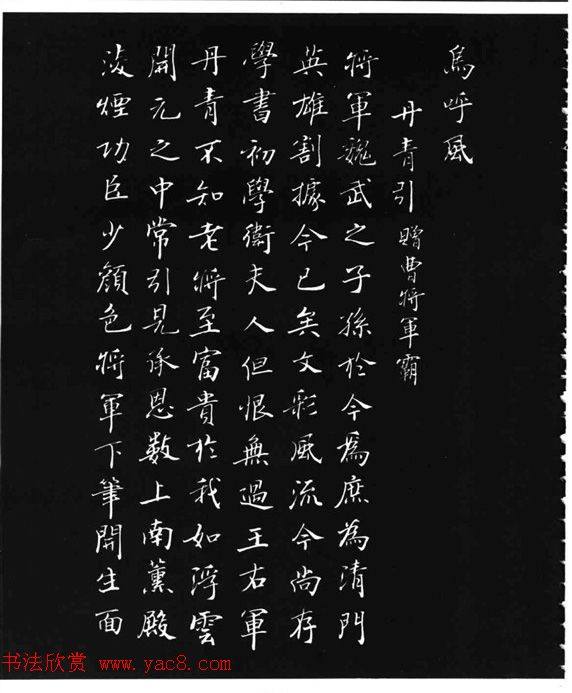 烏呼風
丹青引 贈曹將軍霸
將軍魏武之子孫於今爲庶為清門
英雄割據今已矣文彩風流今尚存
學書初學衛夫人但恨無過王右軍
丹青不知老將至富貴於我如浮雲
開元之中常引見承恩數上南薰殿
淩煙功臣少顏色將軍下筆開生面
书法欣赏 www.yac8.com